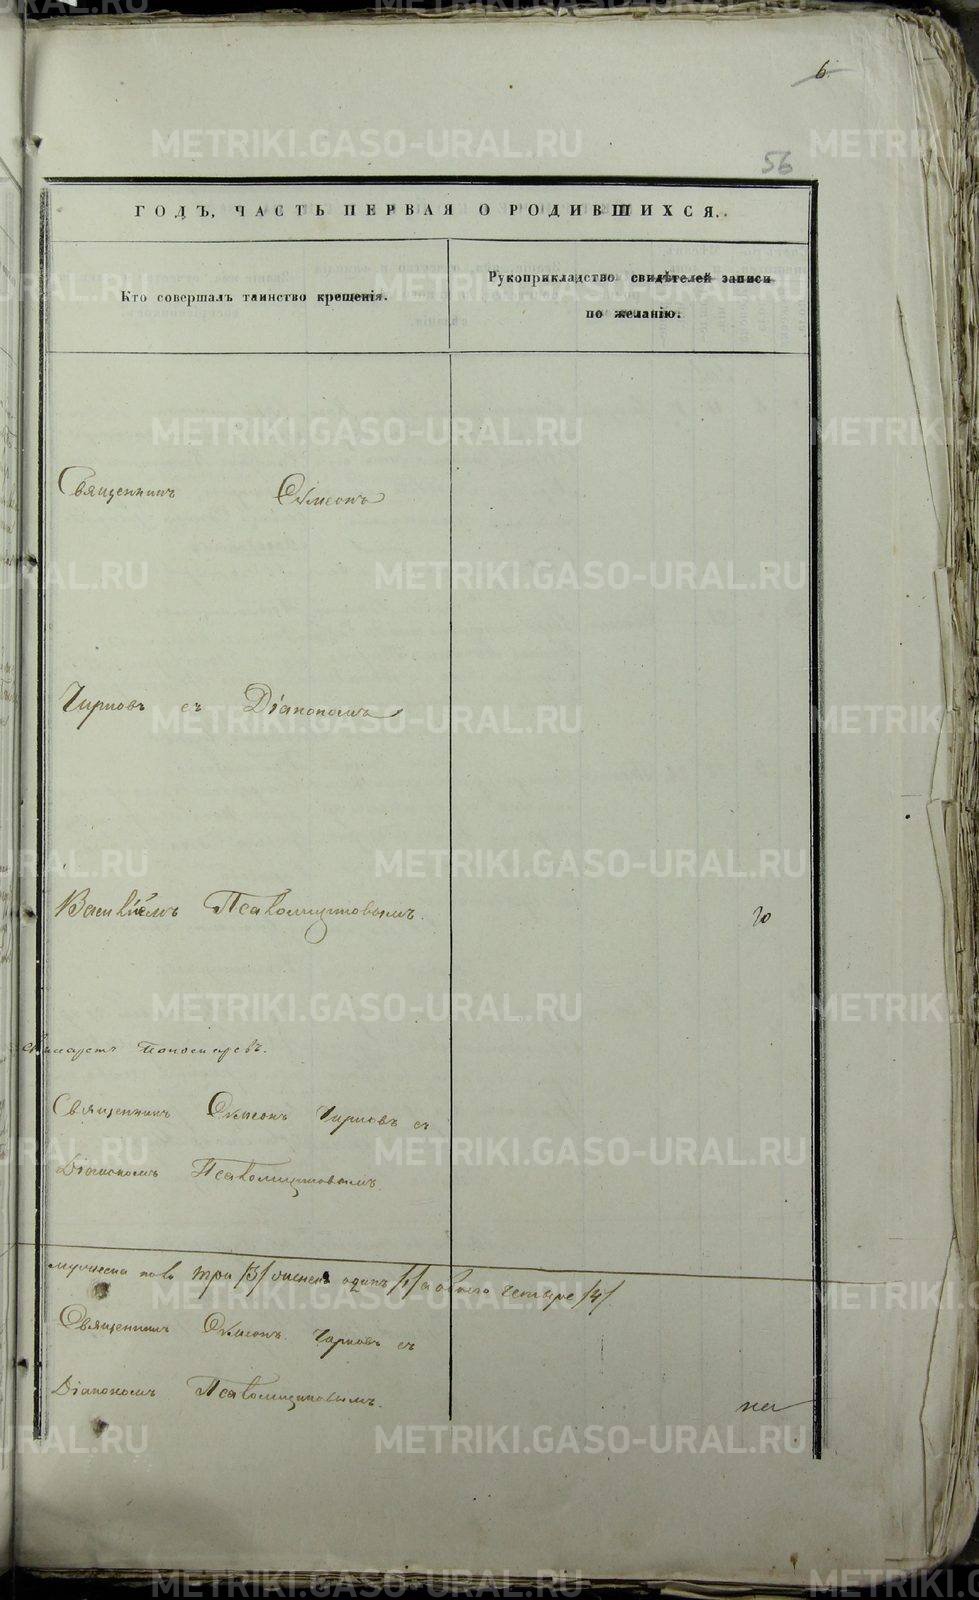 6
56
ГОДЪ, ЧАСТЬ ПЕРВАЯ О РОДИВШИХСЯ.
Кто совершалъ таинство крещенія.
Рукоприкладство свидѣтелей записи
по желанію.
Священникъ Симеонъ
Чирковъ съ Діакономъ
Василіемъ Псаломщиковымъ.
Пономаревъ.
Священникъ Симеонъ Чирковъ съ
Діакономъ Псаломщиковымъ.
мужеска пола три /3/ женска одинъ /1/ а обоего четыре /4/
Священникъ Симеонъ Чирковъ съ
Діакономъ Псаломщиковымъ.
METRIKI.GASO-URAL.RU